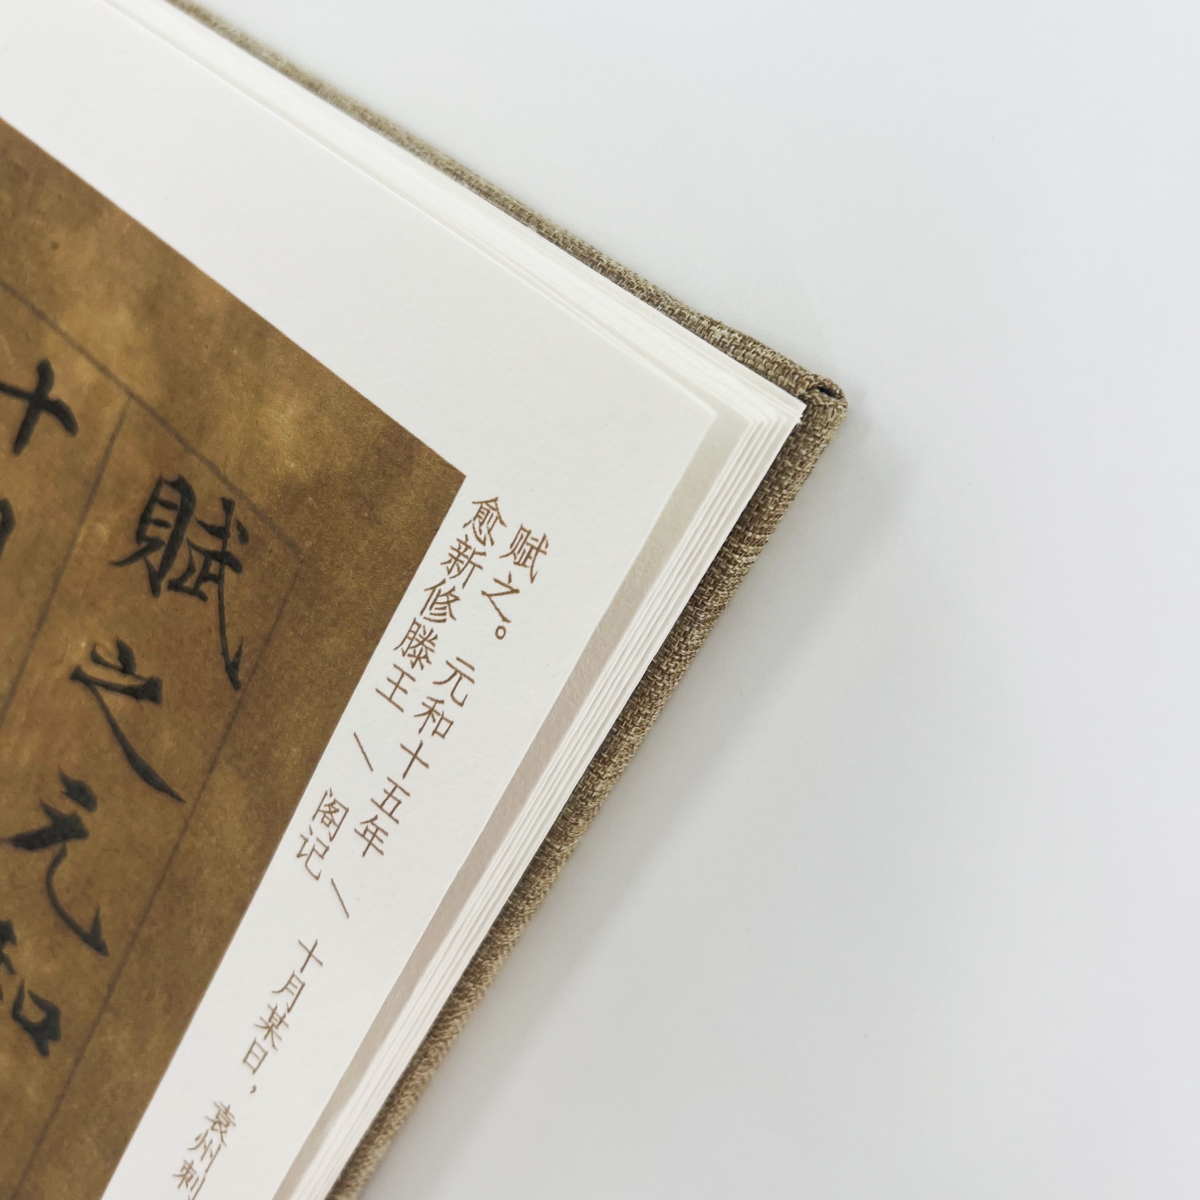 赋之。元和十五年 \ 十月某日，袁州刺
愈新修滕王 \ 阁记
賦之元和
十